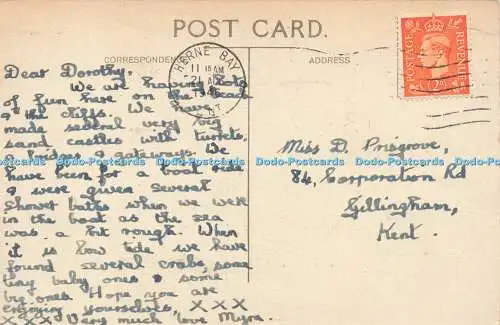 POST CARD.
CORRESPONDENCE
ADDRESS
HERNE BAY
11 15 AM
21
KENT
POSTAGE
REVENUE
2D
Dear Dorothy,
We are having lots
of fun here on the
& the cliffs. We have
made several very big
sand castles with turrets,
& gateways. We
have been for a boat ride
& were given several
shower baths when we were
in the boat as the sea
was a bit rough. When
it is low tide we have
found several crabs, some
tiny baby ones & some
big ones. Hope you are
enjoying yourselves, XXX
XXX Very much love Myra.
Miss D. Prisgrove,
84, Corporation Rd
Gillingham,
Kent.
Dodo-Postcards Dodo-Postcards Dodo-Postcards Dodo-Postcards